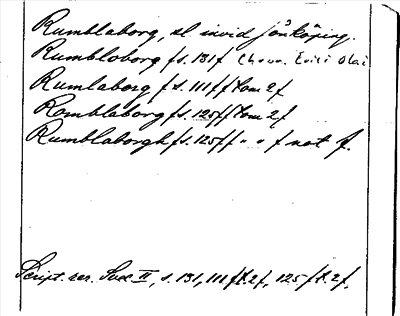 Rumblaborg, sl invid Jönköping.
Rumbloborg (s. 131) Chron. Erici Olai
Rumlaborg (s. 111) (tom 2)
Romblaborg (s. 125) (tom 2)
Rumblaborgh (s. 125) ( " " ) not f.
Script. rer. Svec. II, s. 131, 111 (t. 2), 125 (t. 2).